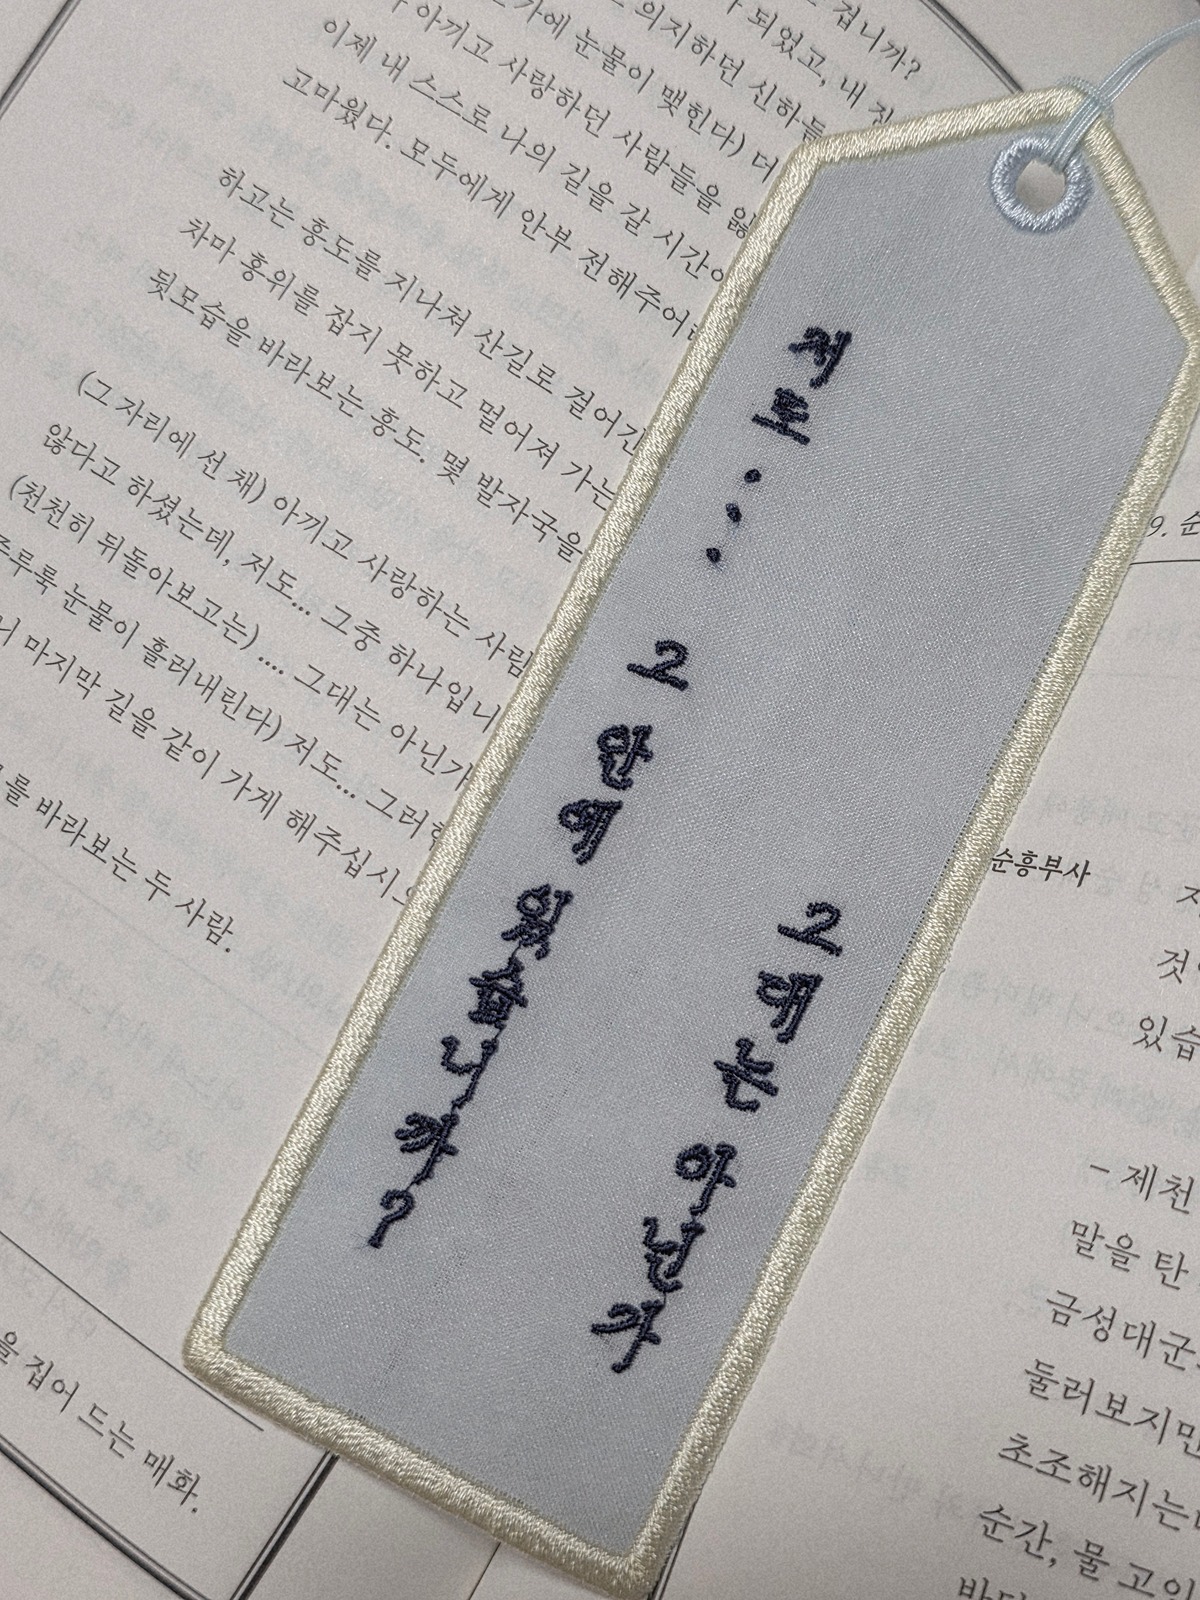 겁니까?
되었고, 내
의지하던 신하들
눈물이 맺힌다) 더
아끼고 사랑하던 사람들을
이제 내 스스로 나의 길을 갈 시간이
고마웠다. 모두에게 안부 전해주어라
하고는 홍도를 지나쳐 산길로 걸어간
차마 홍위를 잡지 못하고 멀어져 가는
뒷모습을 바라보는 홍도. 몇 발자국을
(그 자리에 선 채) 아끼고 사랑하는 사람
않다고 하셨는데, 저도... 그중 하나입니
(천천히 뒤돌아보고는) .... 그대는 아닌가
주루룩 눈물이 흘러내린다) 저도... 그러
니 마지막 길을 같이 가게 해주십시오
를 바라보는 두 사람.
을 집어 드는 매화.
저도...
그 안에 있습니까?
그대는 아닌가
9. 순
순흥부사
것이
있습
- 제천
말을 탄
금성대군
둘러보지만
초조해지는
순간, 물 고인